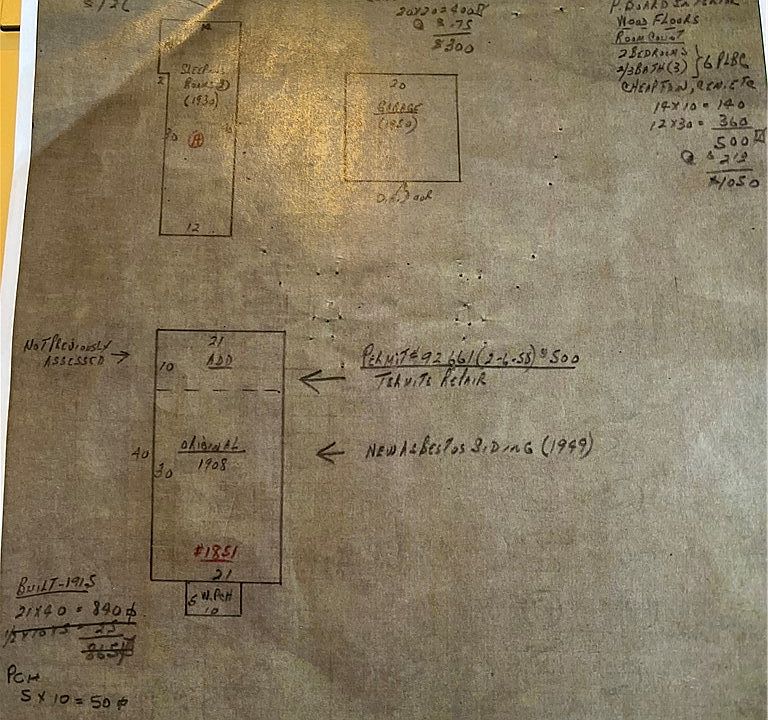 20x20=400
@ $.75
$300
P. BOARD INTERIOR
WOOD FLOORS
ROOM COUNT
2 BEDROOMS
2/3 BATH (3) } 6 PLBG
CHEAP
14x10 = 140
12x30 = 360
500
$1050
SLEEPING
ROOMS
(1930)
2
30
A
12
20
GARAGE
(1950)
NOT PREVIOUSLY
ASSESSED →
21
ADD
10
← PERMIT #92661 (2-6-58) $500
TERMITE REPAIR
40
ORIGINAL
1908
30
← NEW ASBESTOS SIDING (1949)
#1851
21
5 W.PCH
10
BUILT-1915
21x40 = 840
1/2 x10x5 = 25
865
PCH
5 x 10 = 50